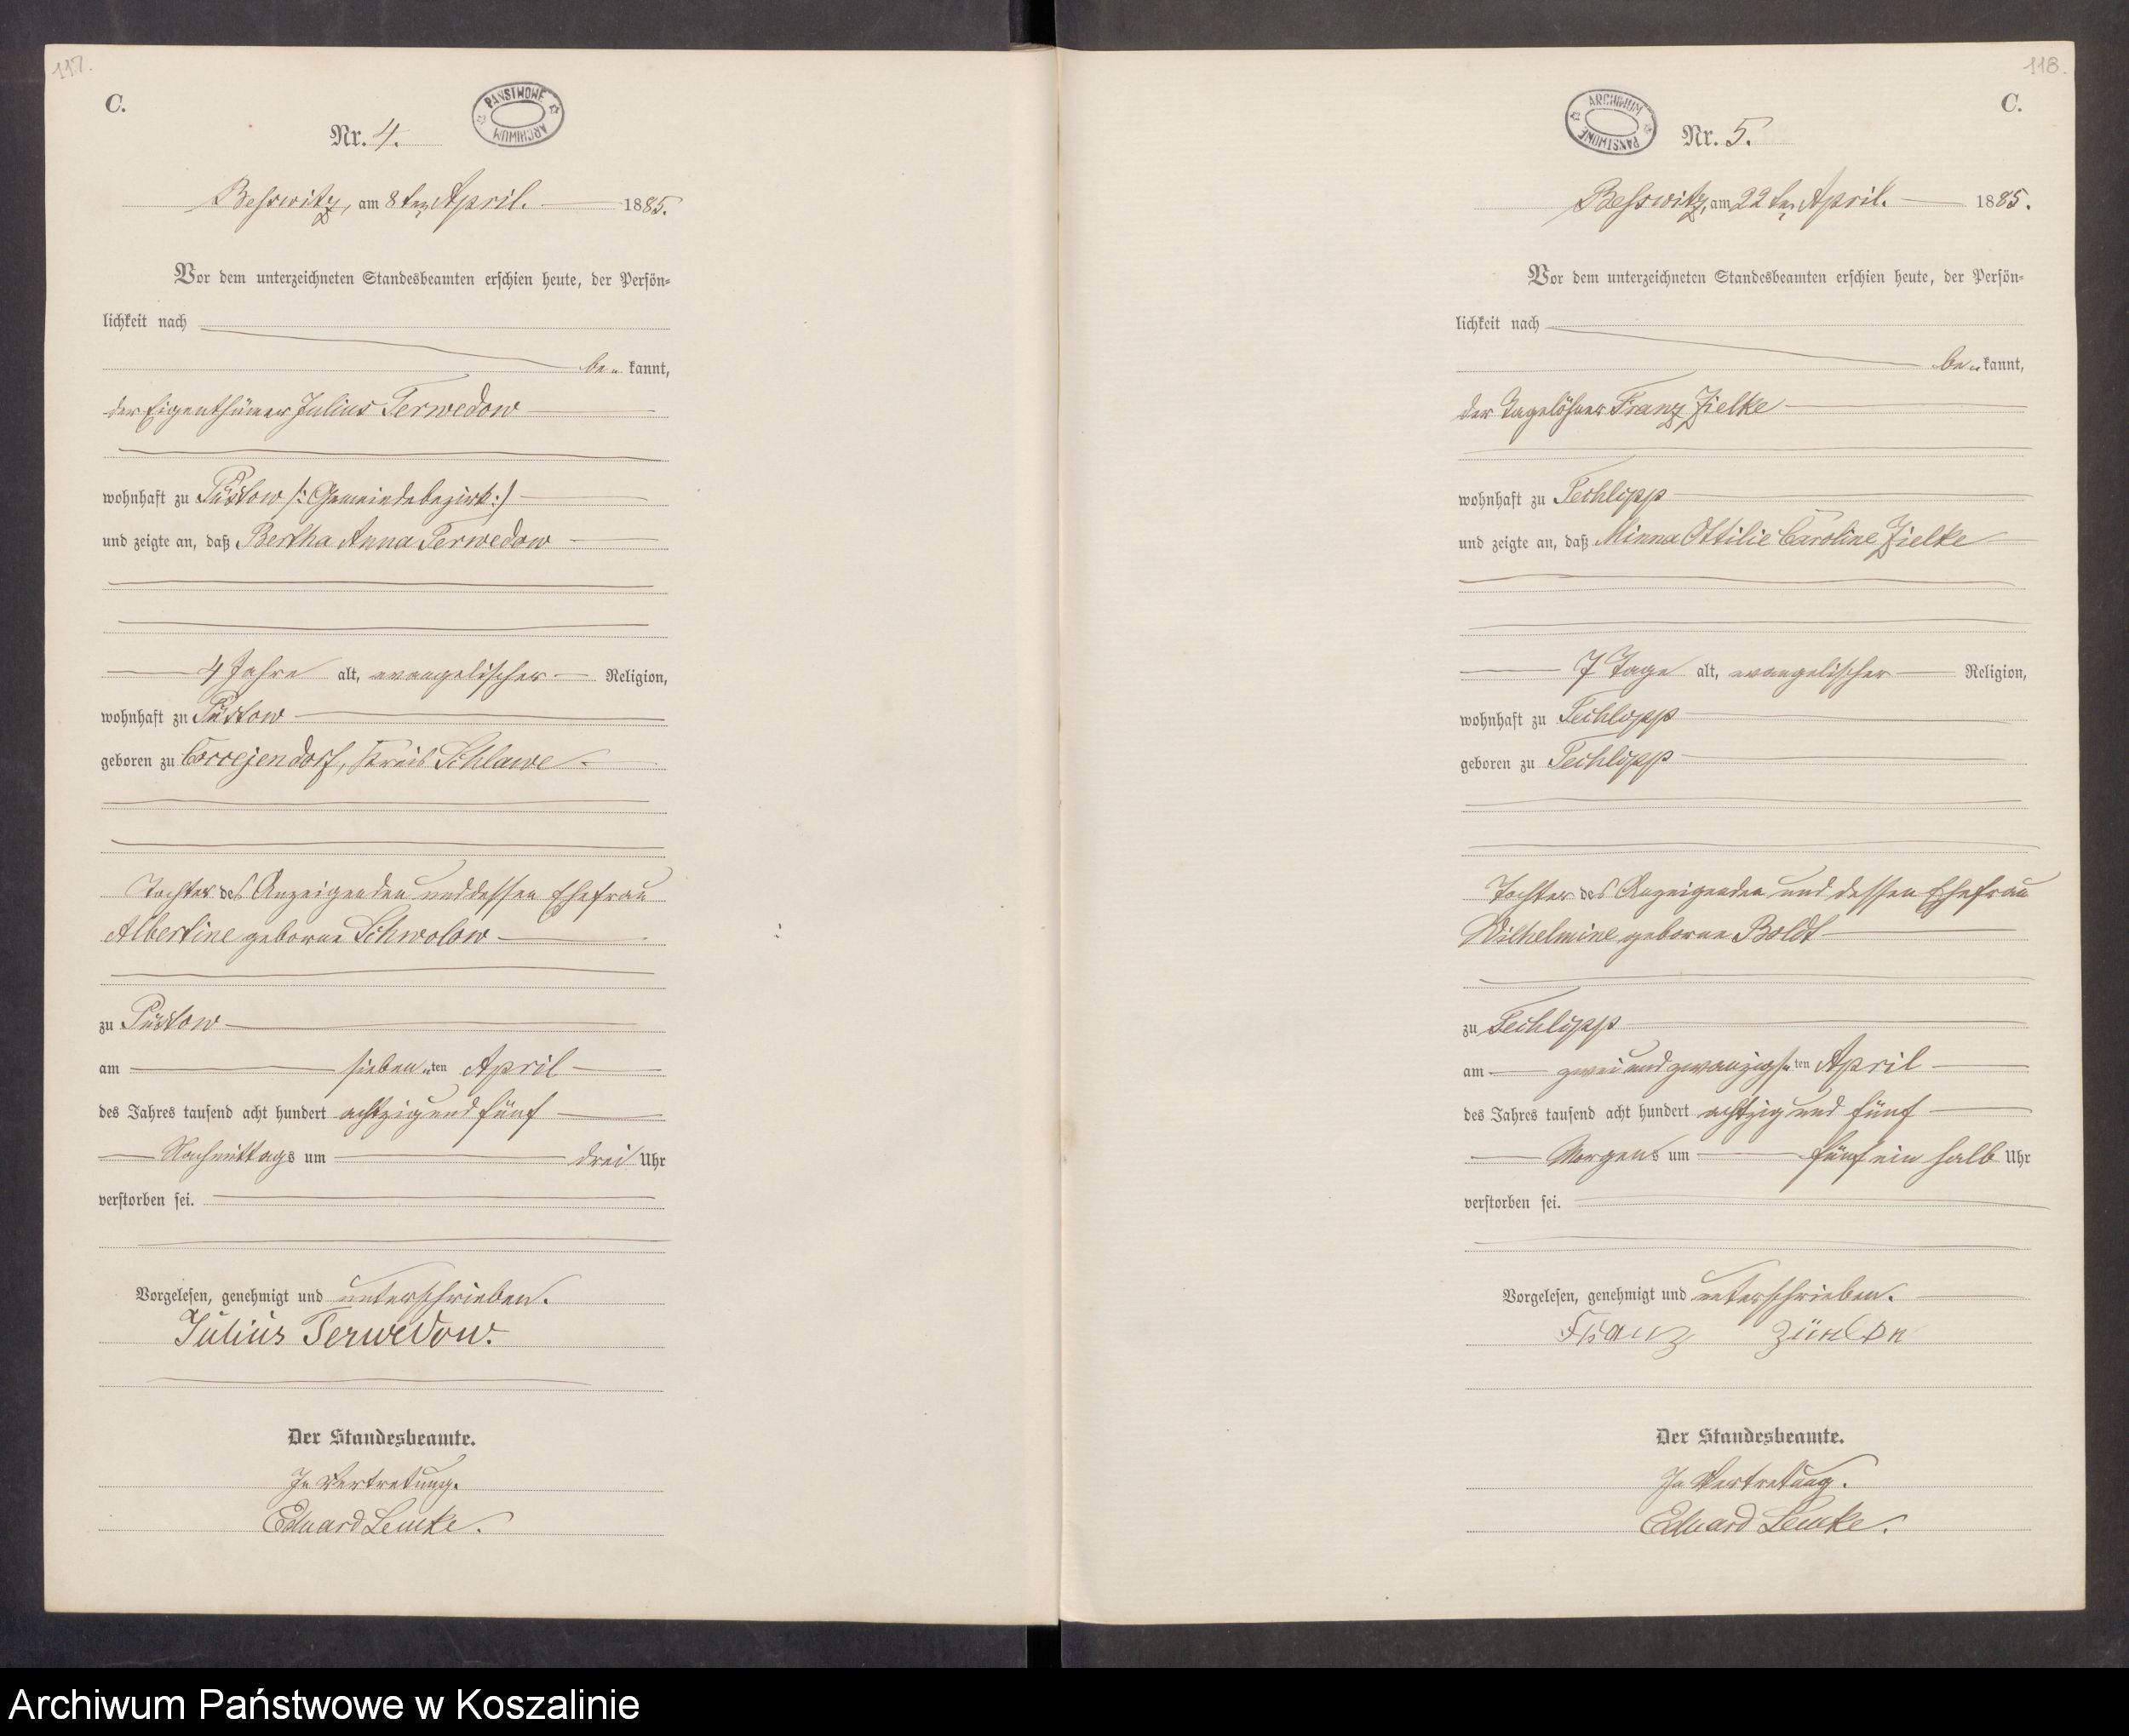 117.
C.
PANSTWOWE ARCHIWUM
Nr. 4.
Besswitz, am 8ten April. 1885.
Vor dem unterzeichneten Standesbeamten erschien heute, der Persön-
lichkeit nach
be„ kannt,
der Eigenthümer Julius Terwedow
wohnhaft zu Püstow /: Gemeindebezirk :/
und zeigte an, daß Bertha Anna Terwedow
4 Jahre alt, evangelischer Religion,
wohnhaft zu Püstow
geboren zu Correjendorf, Kreis Schlawe
Tochter des Anzeigenden und dessen Ehefrau
Albertine geborne Schwolow
zu Püstow
am sieben„ten April
des Jahres tausend acht hundert achtzig und fünf
Nachmittags um drei Uhr
verstorben sei.
Vorgelesen, genehmigt und unterschrieben.
Julius Terwedow.
Der Standesbeamte.
In Vertretung.
Eduard Lemke.
118.
C.
ARCHIWUM PANSTWOWE
Nr. 5.
Besswitz, am 22ten April. 1885.
Vor dem unterzeichneten Standesbeamten erschien heute, der Persön-
lichkeit nach
be„ kannt,
der Tagelöhner Franz Zielke
wohnhaft zu Techlipp
und zeigte an, daß Minna Ottilie Caroline Zielke
7 Tage alt, evangelischer Religion,
wohnhaft zu Techlipp
geboren zu Techlipp
Tochter des Anzeigenden und dessen Ehefrau
Wilhelmine geborne Boldt
zu Techlipp
am zwei und zwanzigs„ten April
des Jahres tausend acht hundert achtzig und fünf
Morgens um fünf ein halb Uhr
verstorben sei.
Vorgelesen, genehmigt und unterschrieben.
Franz
Der Standesbeamte.
In Vertretung.
Eduard Lemke.
Archiwum Państwowe w Koszalinie